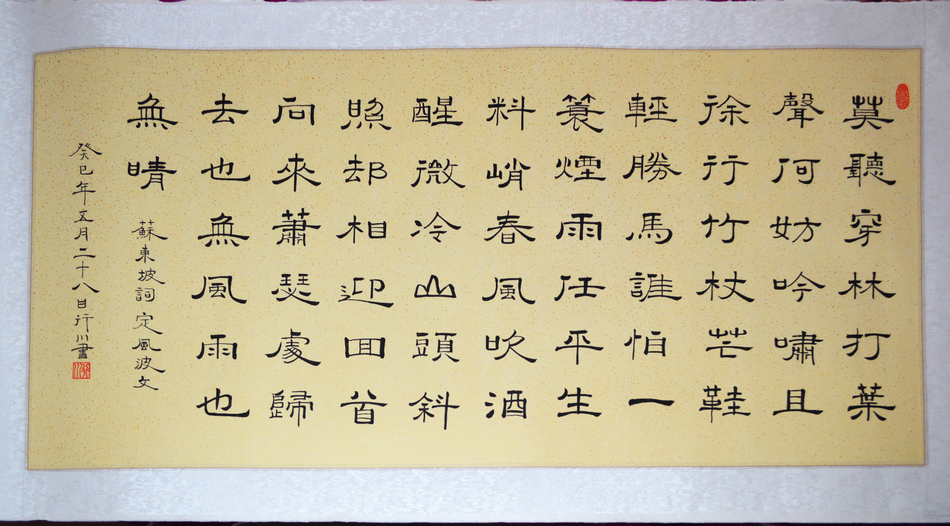 莫聽穿林打葉
聲何妨吟嘯且
徐行竹杖芒鞋
輕勝馬誰怕一
蓑煙雨任平生
料峭春風吹酒
醒微冷山頭斜
照却相迎回首
向來蕭瑟處歸
去也無風雨也
無晴
蘇東坡詞定風波文
癸巳年五月二十八日行川書